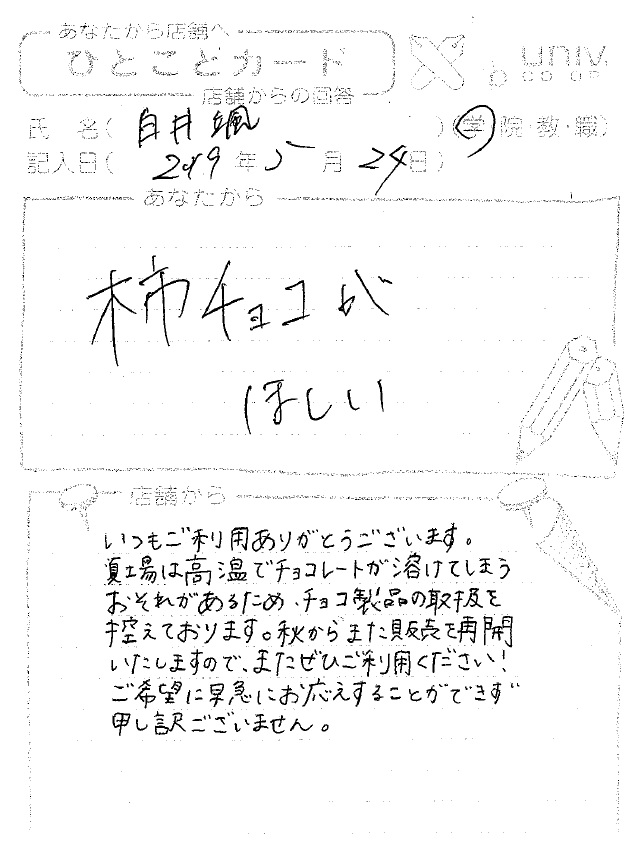 あなたから店舗へ
ひとことカード
店舗からの回答
univ.
CO-OP
氏 名( 白井 颯 )(学・院・教・職)
記入日( 2019 年 5 月 24 日)
あなたから
柿チョコが
ほしい
店舗から
いつもご利用ありがとうございます。
夏場は高温でチョコレートが溶けてしまう
おそれがあるため、チョコ製品の取扱を
控えております。秋からまた販売を再開
いたしますので、またぜひご利用ください!
ご希望に早急にお応えすることができず
申し訳ございません。